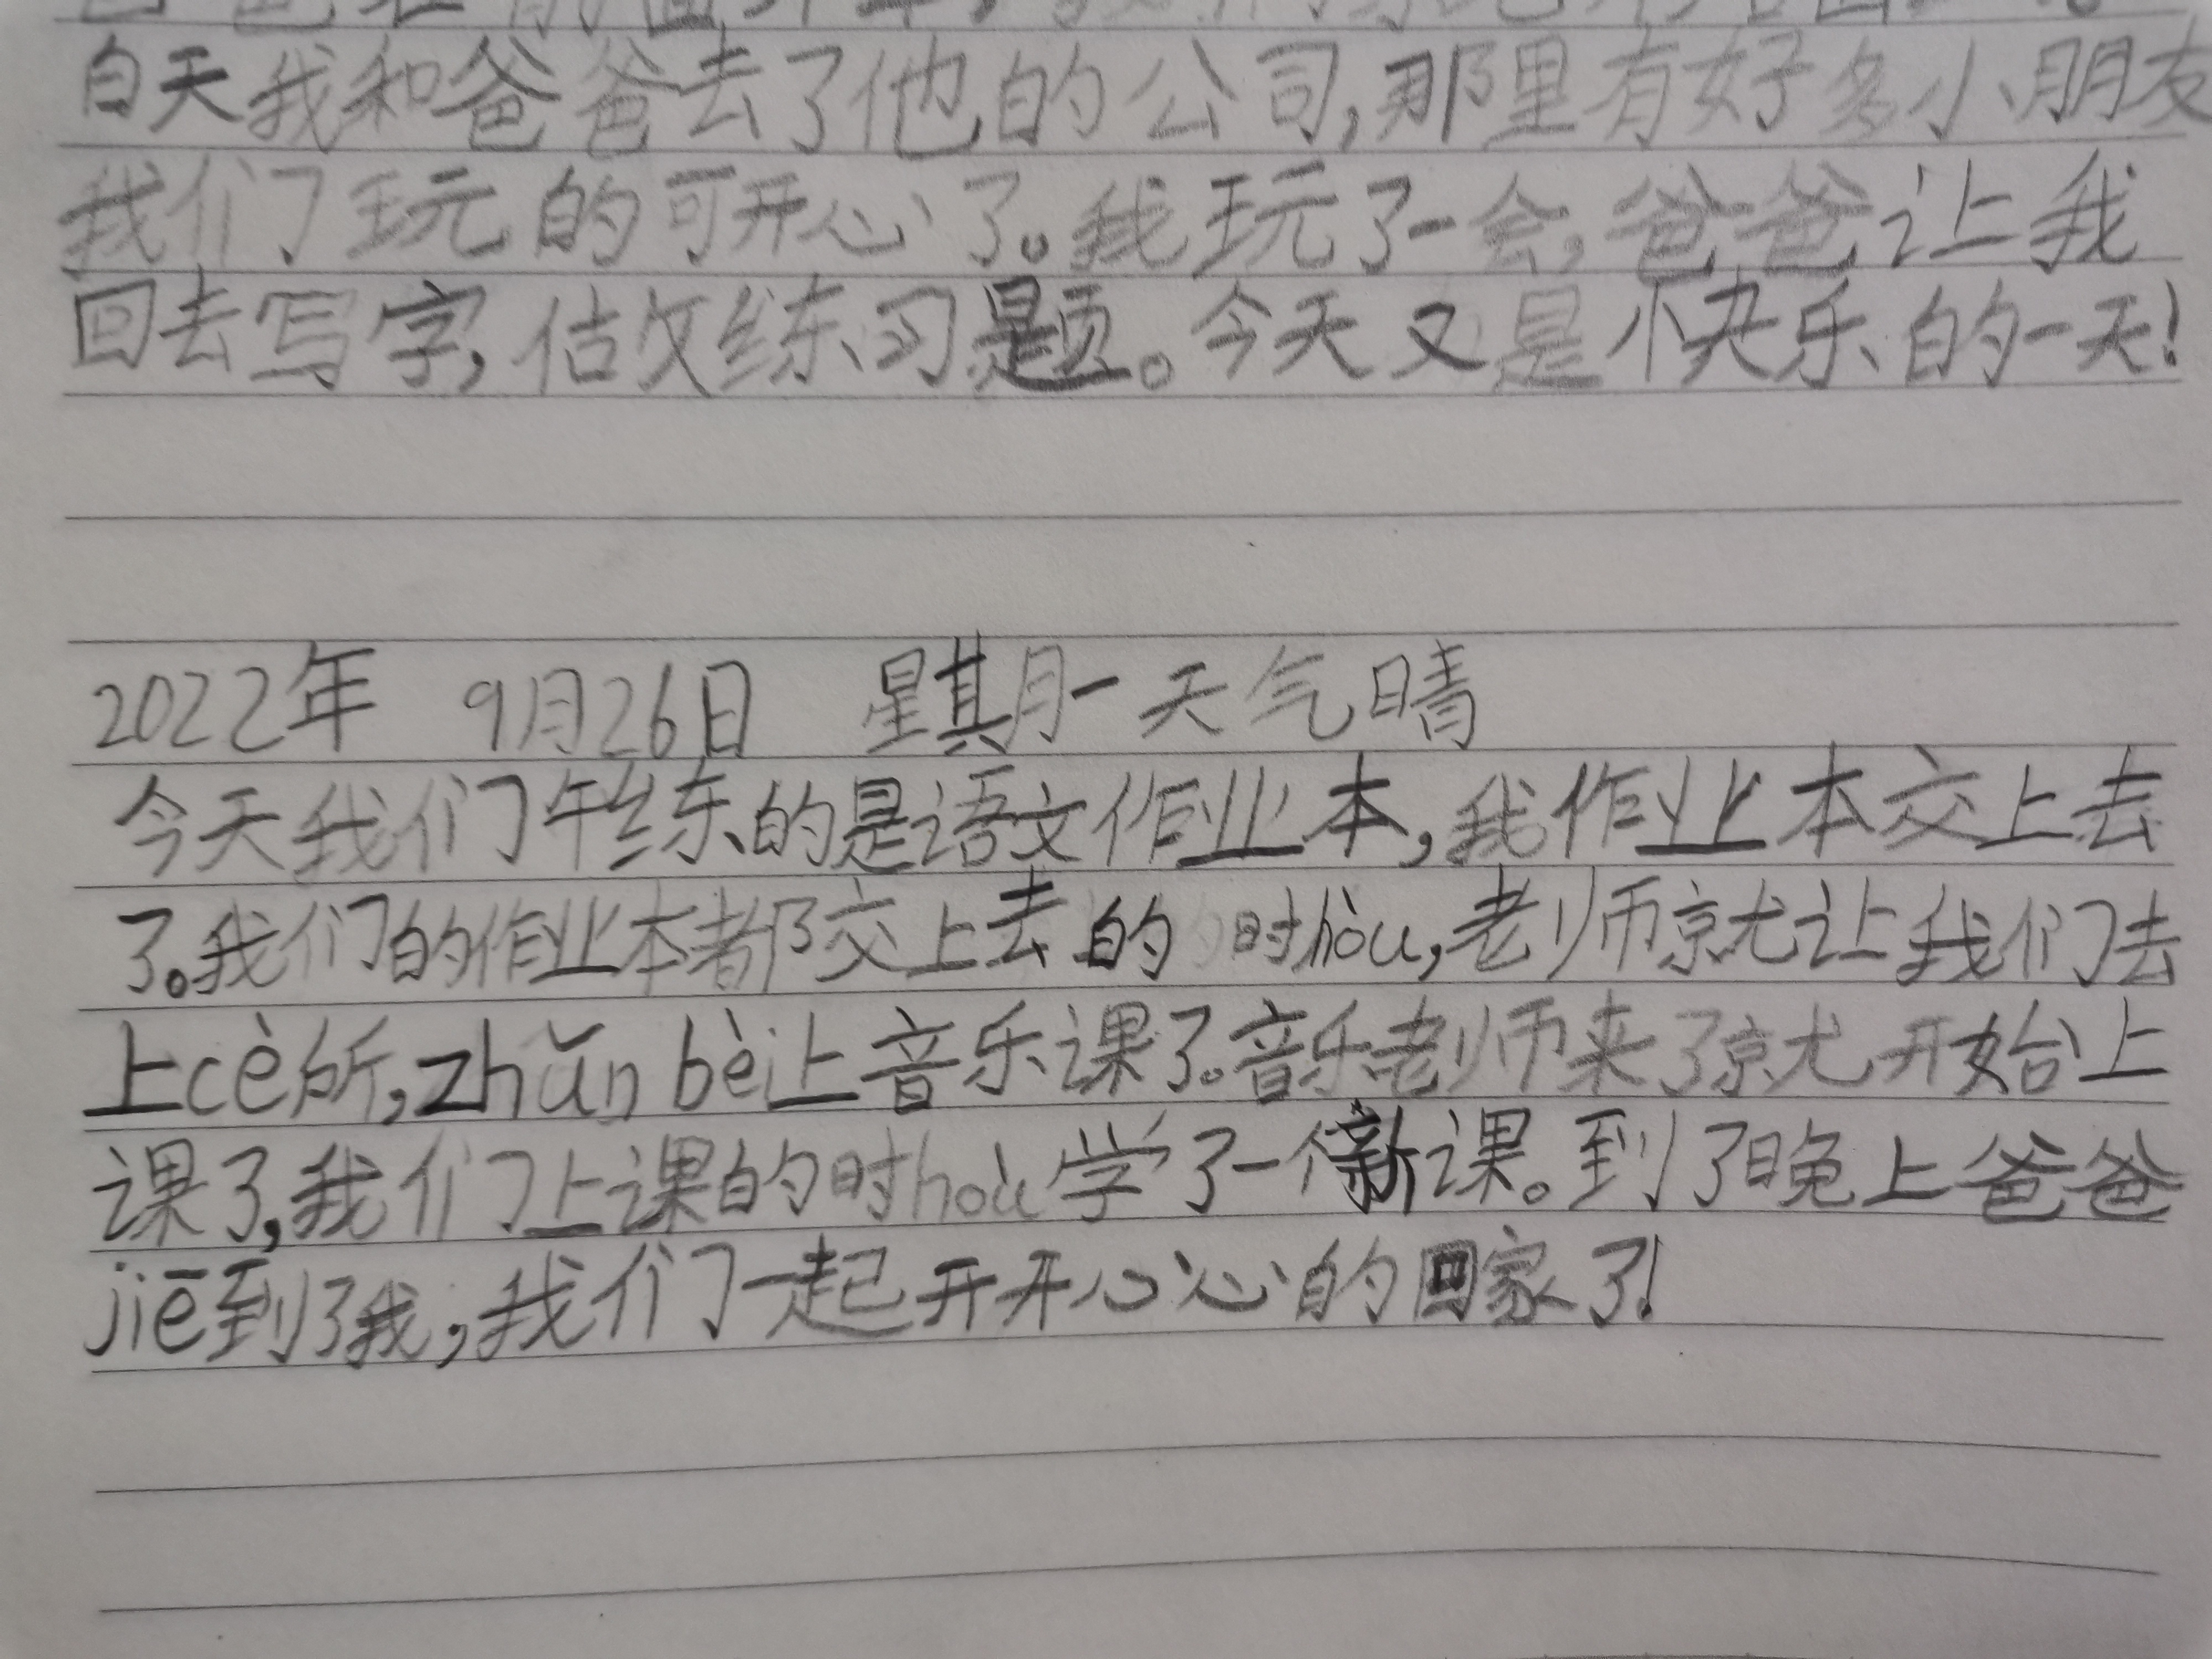 白天我和爸爸去了他的公司,那里有好多小朋友
我们玩的可开心了。我玩了一会,爸爸让我
回去写字,估攵练习题。今天又是快乐的一天!
2022年 9月26日 星期一 天气晴
今天我们午练的是语文作业本,我作业本交上去
了。我们的作业本都交上去的时hòu,老师就让我们去
上cè所,zhǔn bèi上音乐课了。音乐老师来了就开始上
课了,我们上课的时hòu学了一个新课。到了晚上爸爸
jiē到了我,我们一起开开心心的回家了!